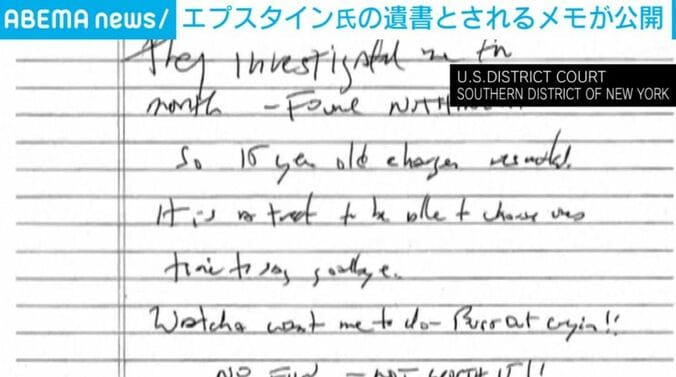 ABEMA news/ エプスタイン氏の遺書とされるメモが公開
They investigated me for
U.S.DISTRICT COURT
SOUTHERN DISTRICT OF NEW YORK
month - Found NOTHING
So 15 year old charges
It is a treat to be able to choose ones
time to say goodbye.
Watcha want me to do - Burst out cryin!!
NO FUN - NOT WORTH IT!!